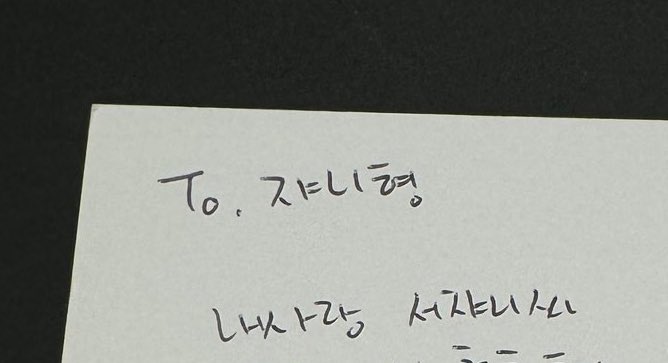 To. 쟈니형
내사랑 서쟈니씨